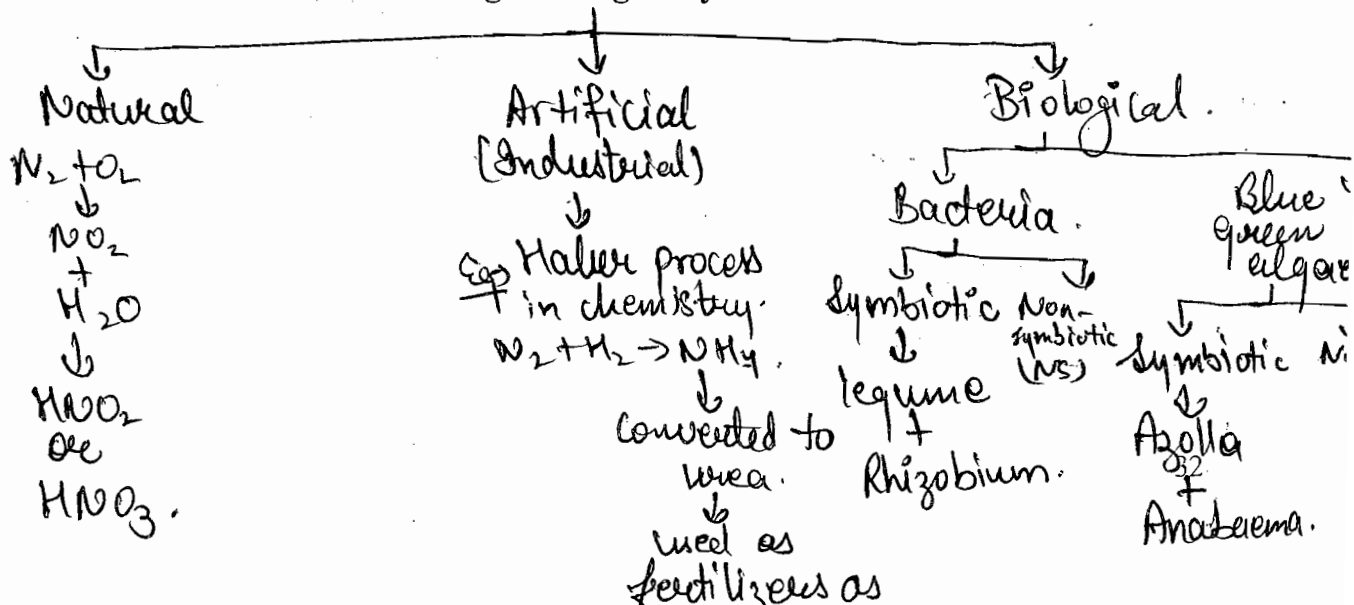 Natural
N₂ + O₂
↓
NO₂
+
H₂O
↓
HNO₂
or
HNO₃.
Artificial
(Industrial)
↓
Eg→ Haber process
in chemistry.
N₂ + H₂ → NH4.
↓
Converted to
urea.
↓
used as
fertilizers as
Biological.
Bacteria.
Symbiotic
↓
legume
+
Rhizobium.
Non-
symbiotic
(NS)
Blue
green
algae
Symbiotic
↓
Azolla
32
+
Anabaema.